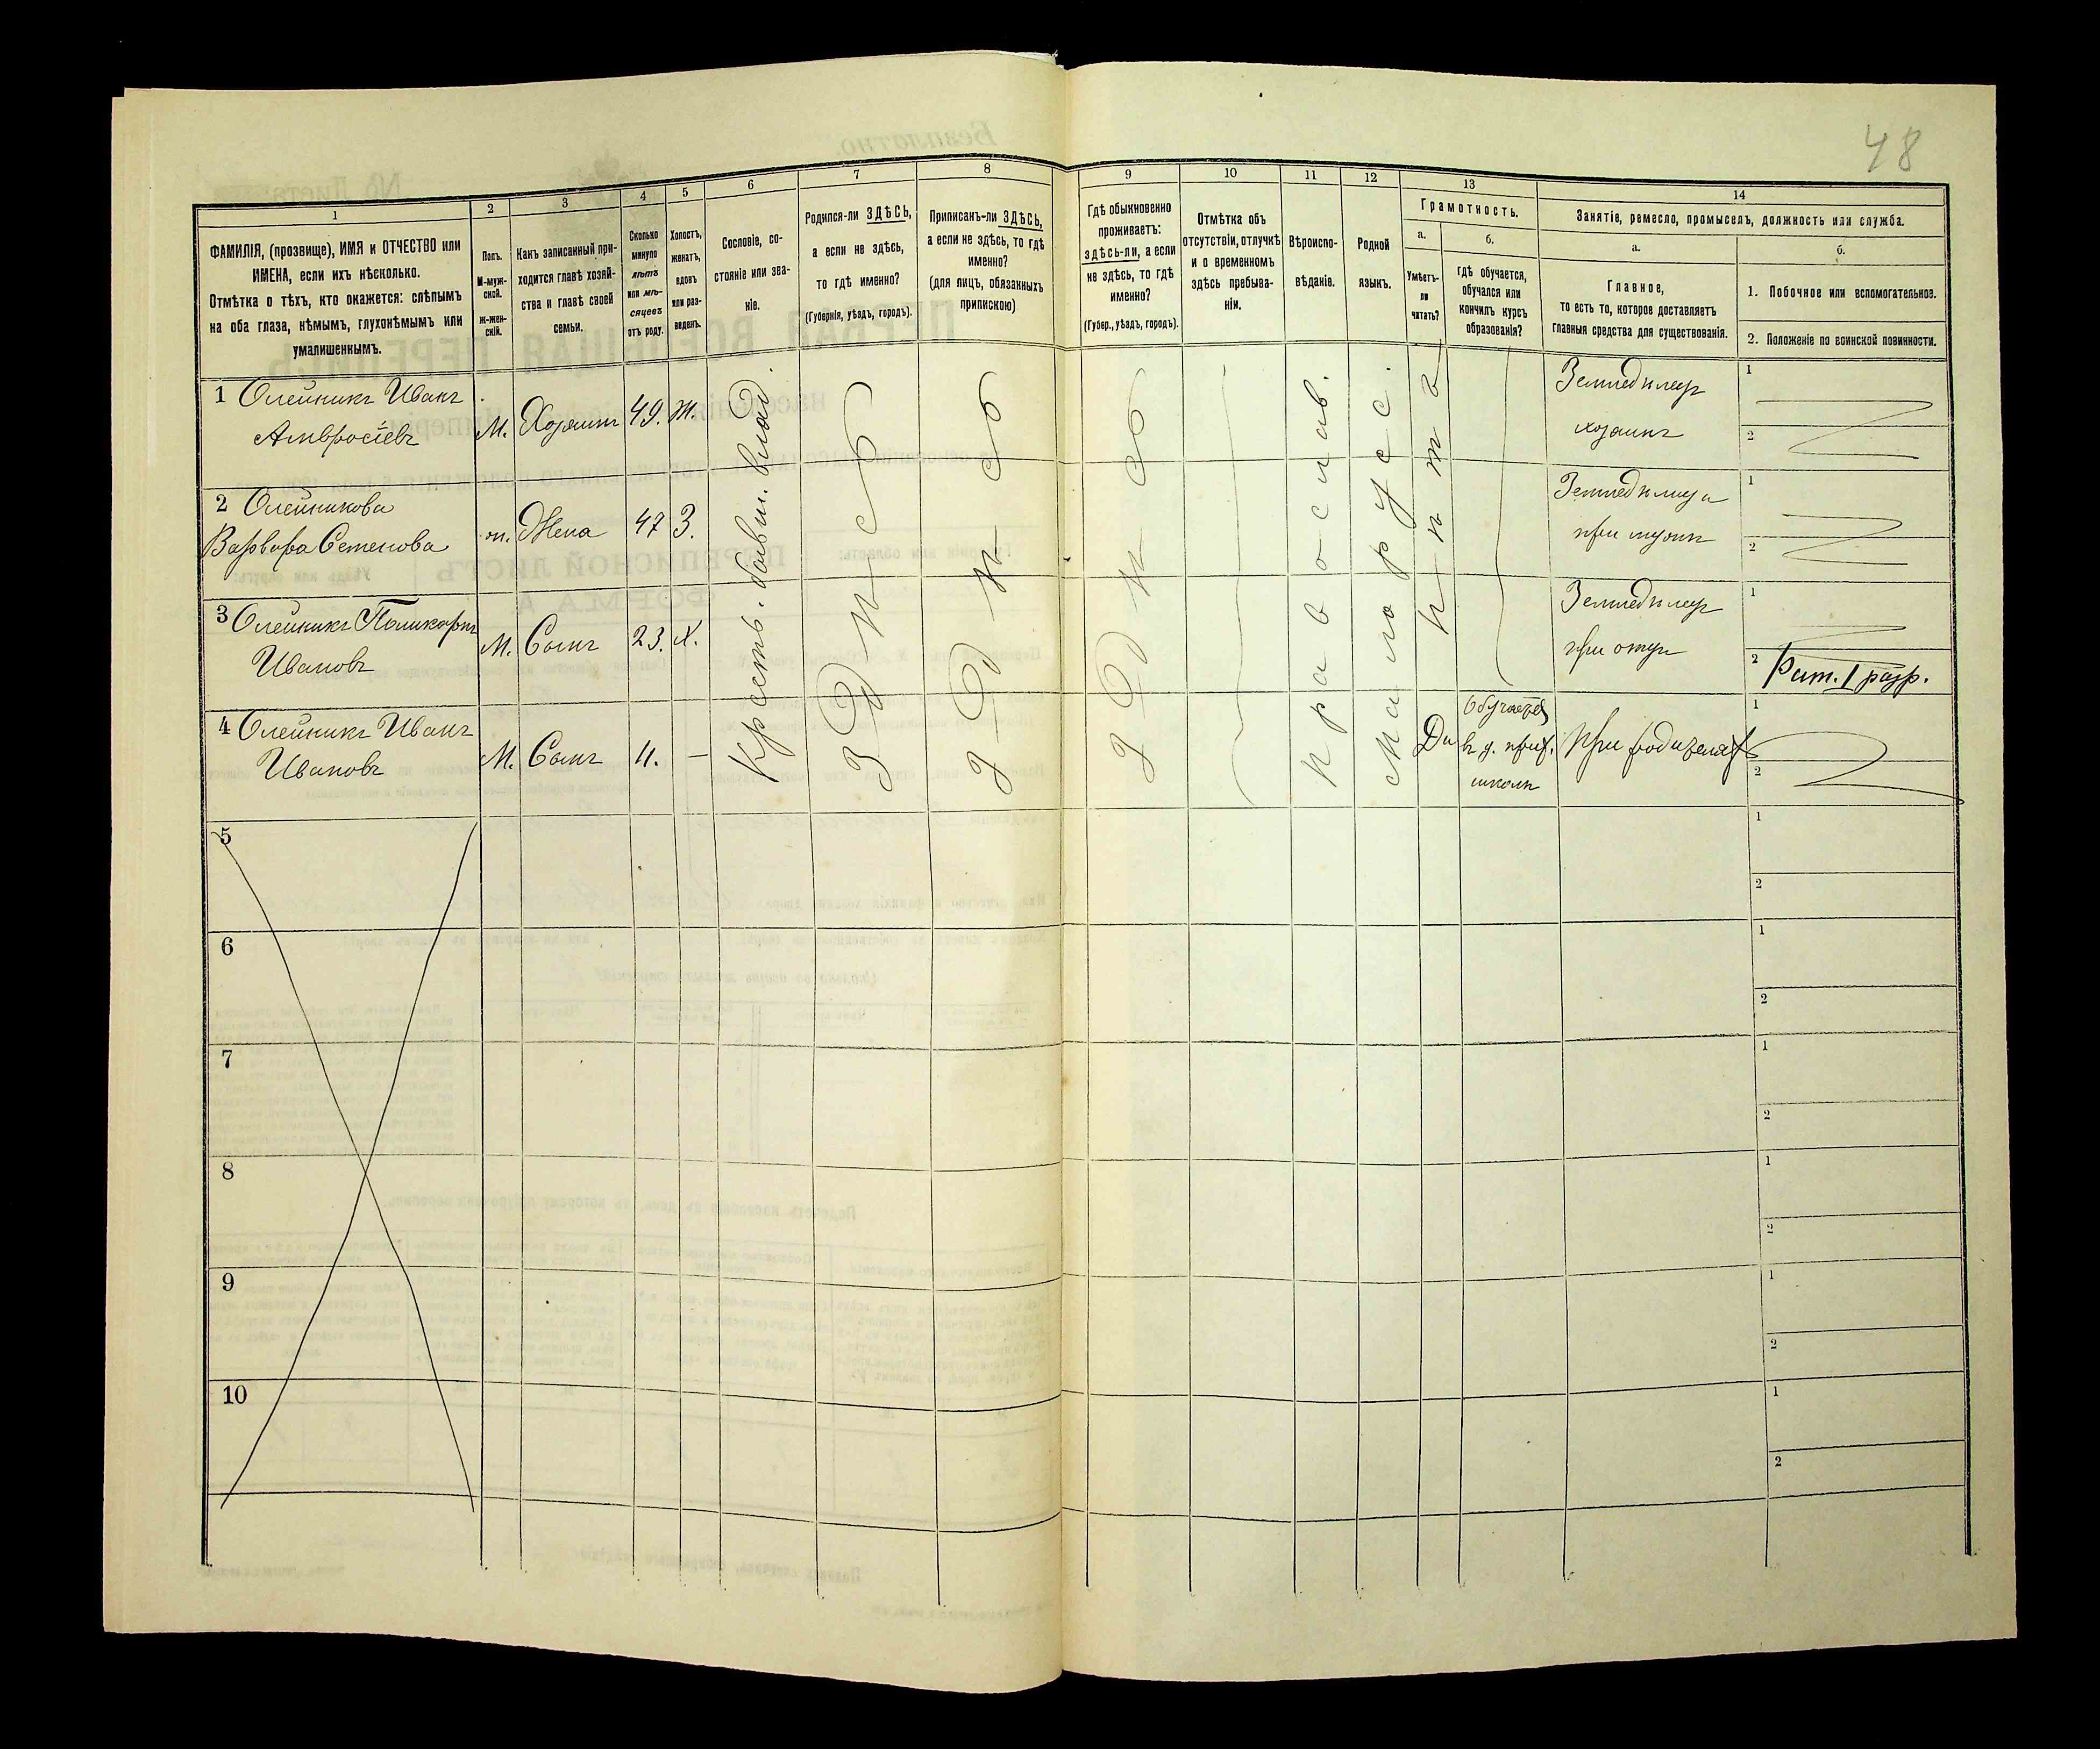 48
1
2
3
4
5
6
7
8
9
10
11
12
13
14
ФАМИЛІЯ, (прозвище), ИМЯ и ОТЧЕСТВО или
ИМЕНА, если ихъ нѣсколько.
Отмѣтка о тѣхъ, кто окажется: слѣпымъ
на оба глаза, нѣмымъ, глухонѣмымъ или
умалишеннымъ.
Полъ.
М-муж-
ской.
Ж-жен-
скій.
Какъ записанный при-
ходится главѣ хозяй-
ства и главѣ своей
семьи.
Сколько
минуло
лѣтъ
или мѣ-
сяцевъ
отъ роду.
Холостъ,
женатъ,
вдовъ
или раз-
веденъ.
Сословіе, со-
стояніе или зва-
ніе.
Родился-ли ЗДѢСЬ,
а если не здѣсь,
то гдѣ именно?
(Губернія, уѣздъ, городъ).
Приписанъ-ли ЗДѢСЬ,
а если не здѣсь, то гдѣ
именно?
(для лицъ, обязанныхъ
припискою)
Гдѣ обыкновенно
проживаетъ:
здѣсь-ли, а если
не здѣсь, то гдѣ
именно?
(Губер., уѣздъ, городъ).
Отмѣтка объ
отсутствіи, отлучкѣ
и о временномъ
здѣсь пребыва-
ніи.
Вѣроиспо-
вѣданіе.
Родной
языкъ.
Грамотность.
а.
Умѣетъ-
ли
читать?
б.
Гдѣ обучается,
обучался или
кончилъ курсъ
образованія?
Занятіе, ремесло, промыселъ, должность или служба.
а.
Главное,
то есть то, которое доставляетъ
главныя средства для существованія.
б.
1. Побочное или вспомогательное.
2. Положеніе по воинской повинности.
1 Олейникъ Иванъ
Амвросіевъ
М.
Хозяинъ
49.
Ж.
Крестъ. бывш. влад.
Здѣсь
здѣсь
здѣсь
Православ.
Малорусс.
нѣтъ
Земледѣлецъ
хозяинъ
1
2
2 Олейникова
Варвара Семенова
ж.
Жена
47
З.
Земледѣлица
при мужѣ
1
2
3 Олейникъ Поликарпъ
Ивановъ
М.
Сынъ
23.
Х.
Земледѣлецъ
при отцѣ
1
2 Рат. 1 разр.
4 Олейникъ Иванъ
Ивановъ
М.
Сынъ
11.
—
Да
Обучается
въ ц. прих.
школѣ
При родителяхъ
1
2
5
1
2
6
1
2
7
1
2
8
1
2
9
1
2
10
1
2